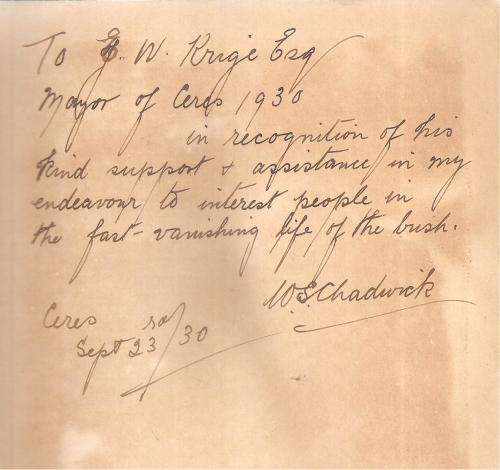 To E. W. Krige Esq
Mayor of Ceres 1930
in recognition of his
kind support & assistance in my
endeavour to interest people in
the fast-vanishing life of the bush.
W.S. Chadwick
Ceres
Sept 23/30